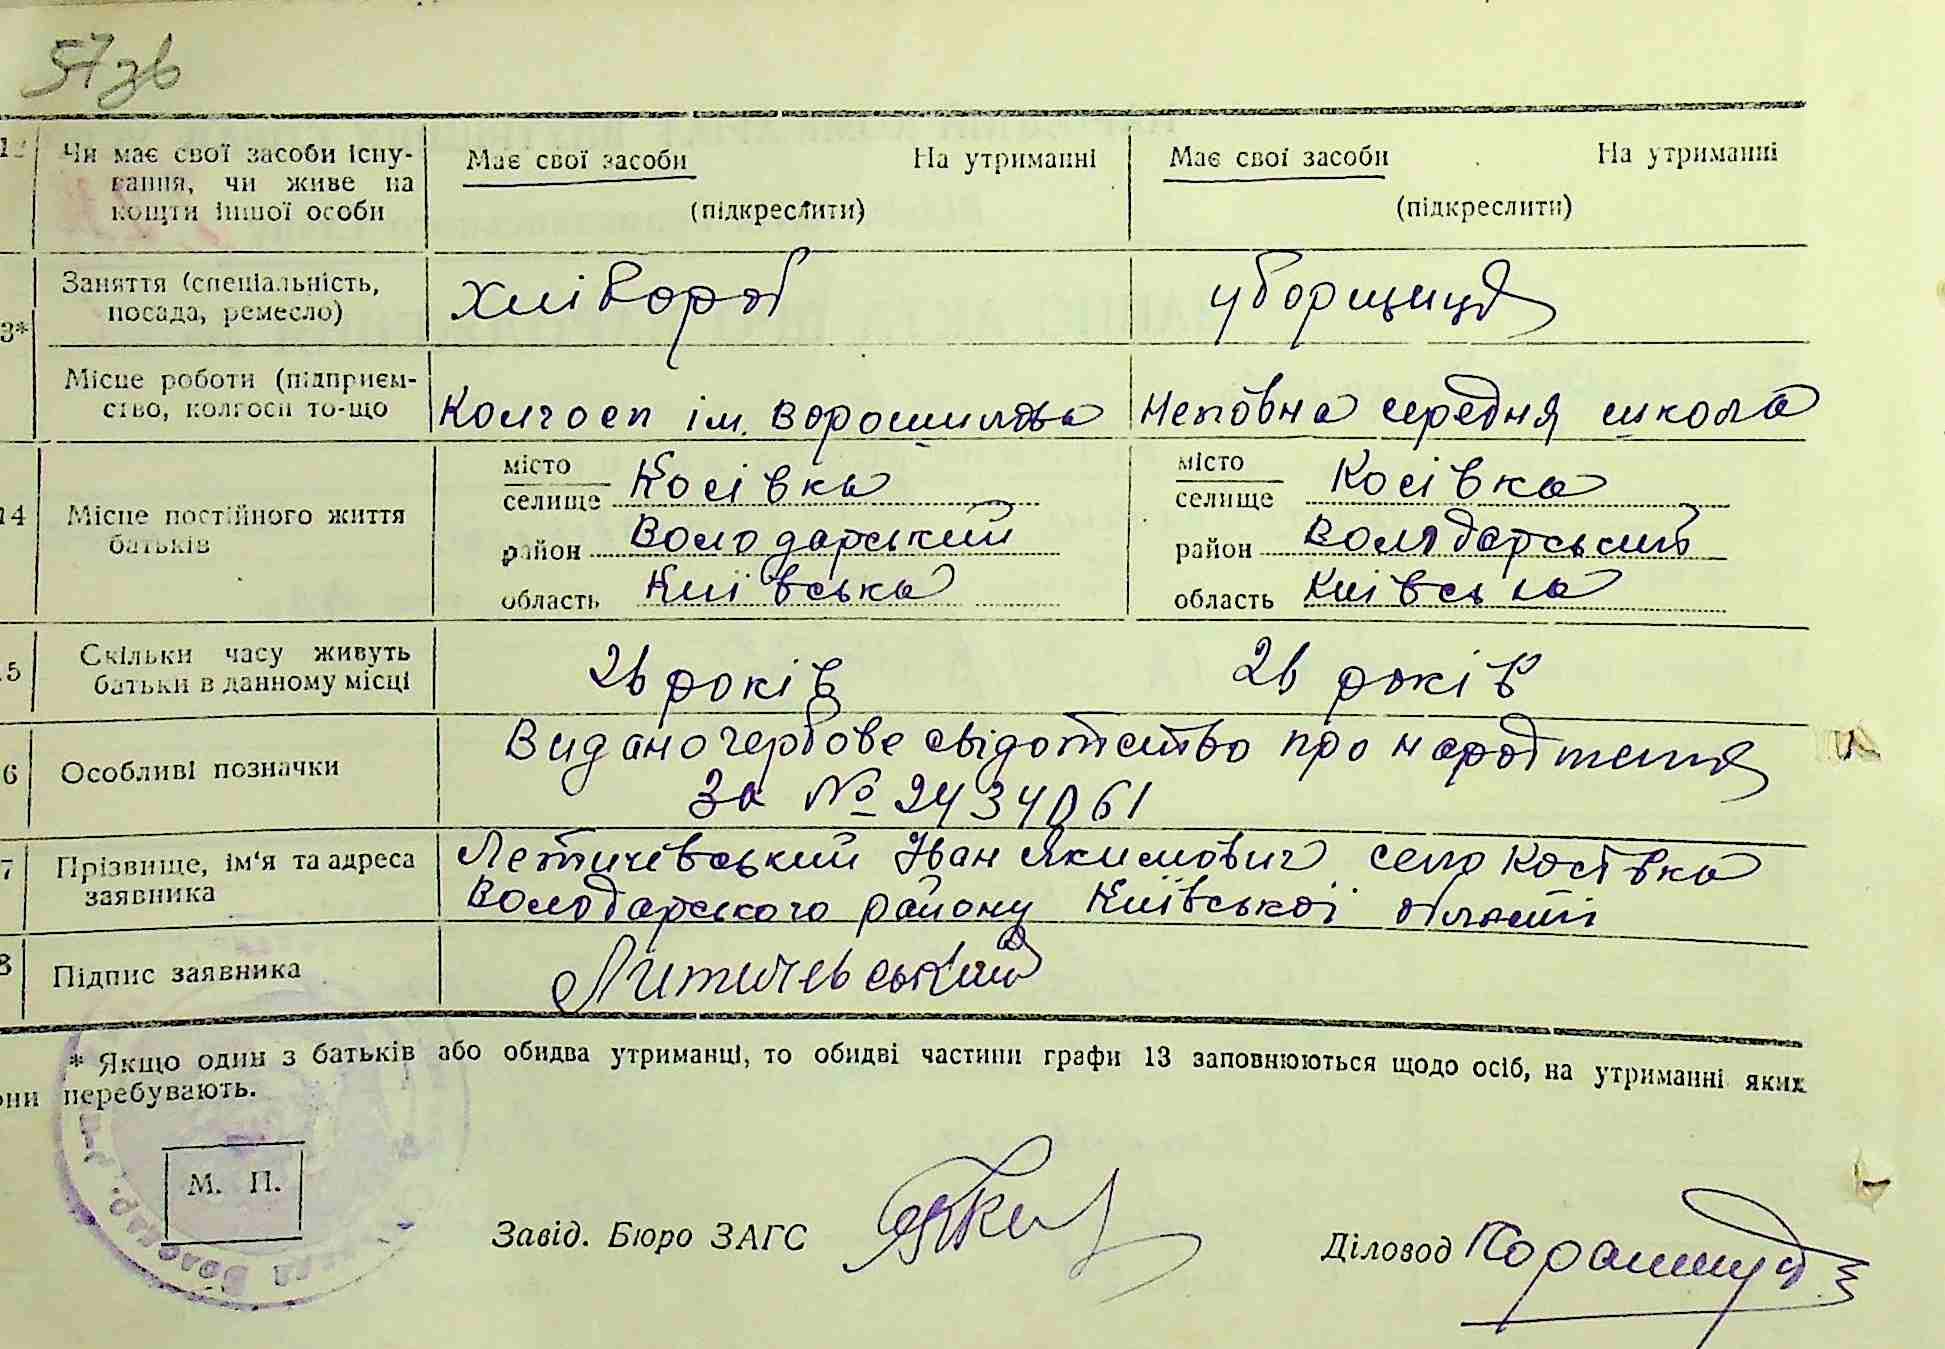 57зв
12 Чи має свої засоби існу-
вання, чи живе на
кошти іншої особи
Має свої засоби На утриманні
(підкреслити)
Має свої засоби На утриманні
(підкреслити)
3*
Заняття (спеціальність,
посада, ремесло)
хлібороб
уборщиця
Місце роботи (підприєм-
ство, колгосп то-що
Колгосп ім. Ворошилова
Неповна середня школа
14 Місце постійного життя
батьків
місто
селище Косівка
район Володарський
область Київська
місто
селище Косівка
район Володарський
область Київська
5 Скільки часу живуть
батьки в данному місці
26 років
26 років
6 Особливі позначки
Видано гербове свідотство про народження
За № 2434061
7 Прізвище, ім'я та адреса
заявника
Летичевський Іван Якимович село Косівка
Володарського району Київської області
8 Підпис заявника
Литичевський
* Якщо один з батьків або обидва утриманці, то обидві частини графи 13 заповнюються щодо осіб, на утриманні яких
они перебувають.
М. П.
Завід. Бюро ЗАГС
Діловод